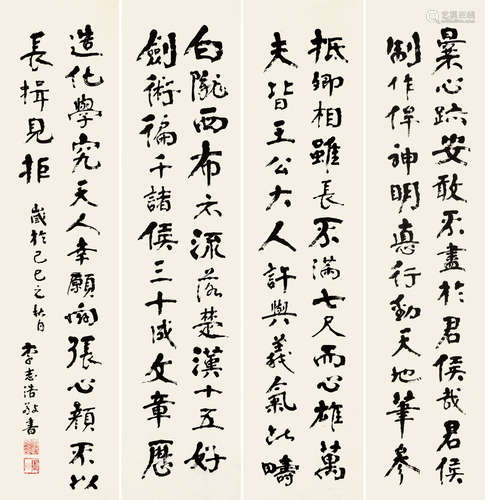 曩心跡安敢不盡於君侯哉君侯
制作侔神明悳行動天地筆參
抵卿相雖長不滿七尺而心雄萬
夫皆王公大人許與義氣此疇
白隴西布衣流落楚漢十五好
劍術徧干諸侯三十成文章歷
造化學究天人幸願開張心顏不以
長揖見拒
歲於己巳之秋月
李志浩敬書